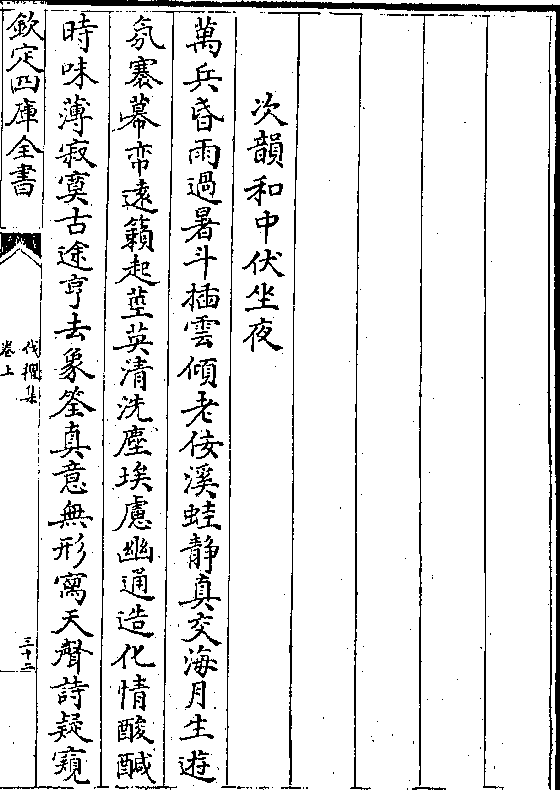 次韻和中伏坐夜
萬兵昏雨過暑斗插雲傾老佞溪蛙静真交海月生遊
氛褰幕帟遠籟起莖英清洗塵埃慮幽通造化情酸醎
時味薄寂寞古途亨去象筌真意無形寓天聲詩疑窺
欽定四庫全書
伐檀集
卷上
三十二